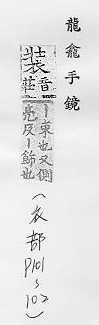 龍龕手鏡
裝音莊丨束也又側亮反丨飾也
(衣部 P101~102)